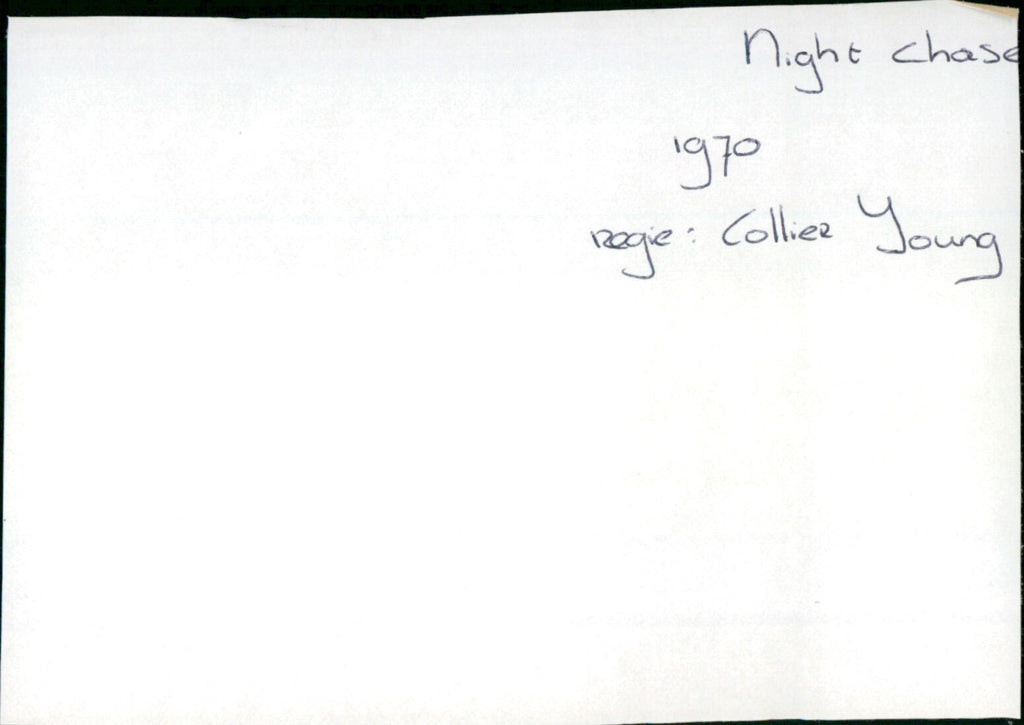 Night Chase
1970
regie: Collier Young